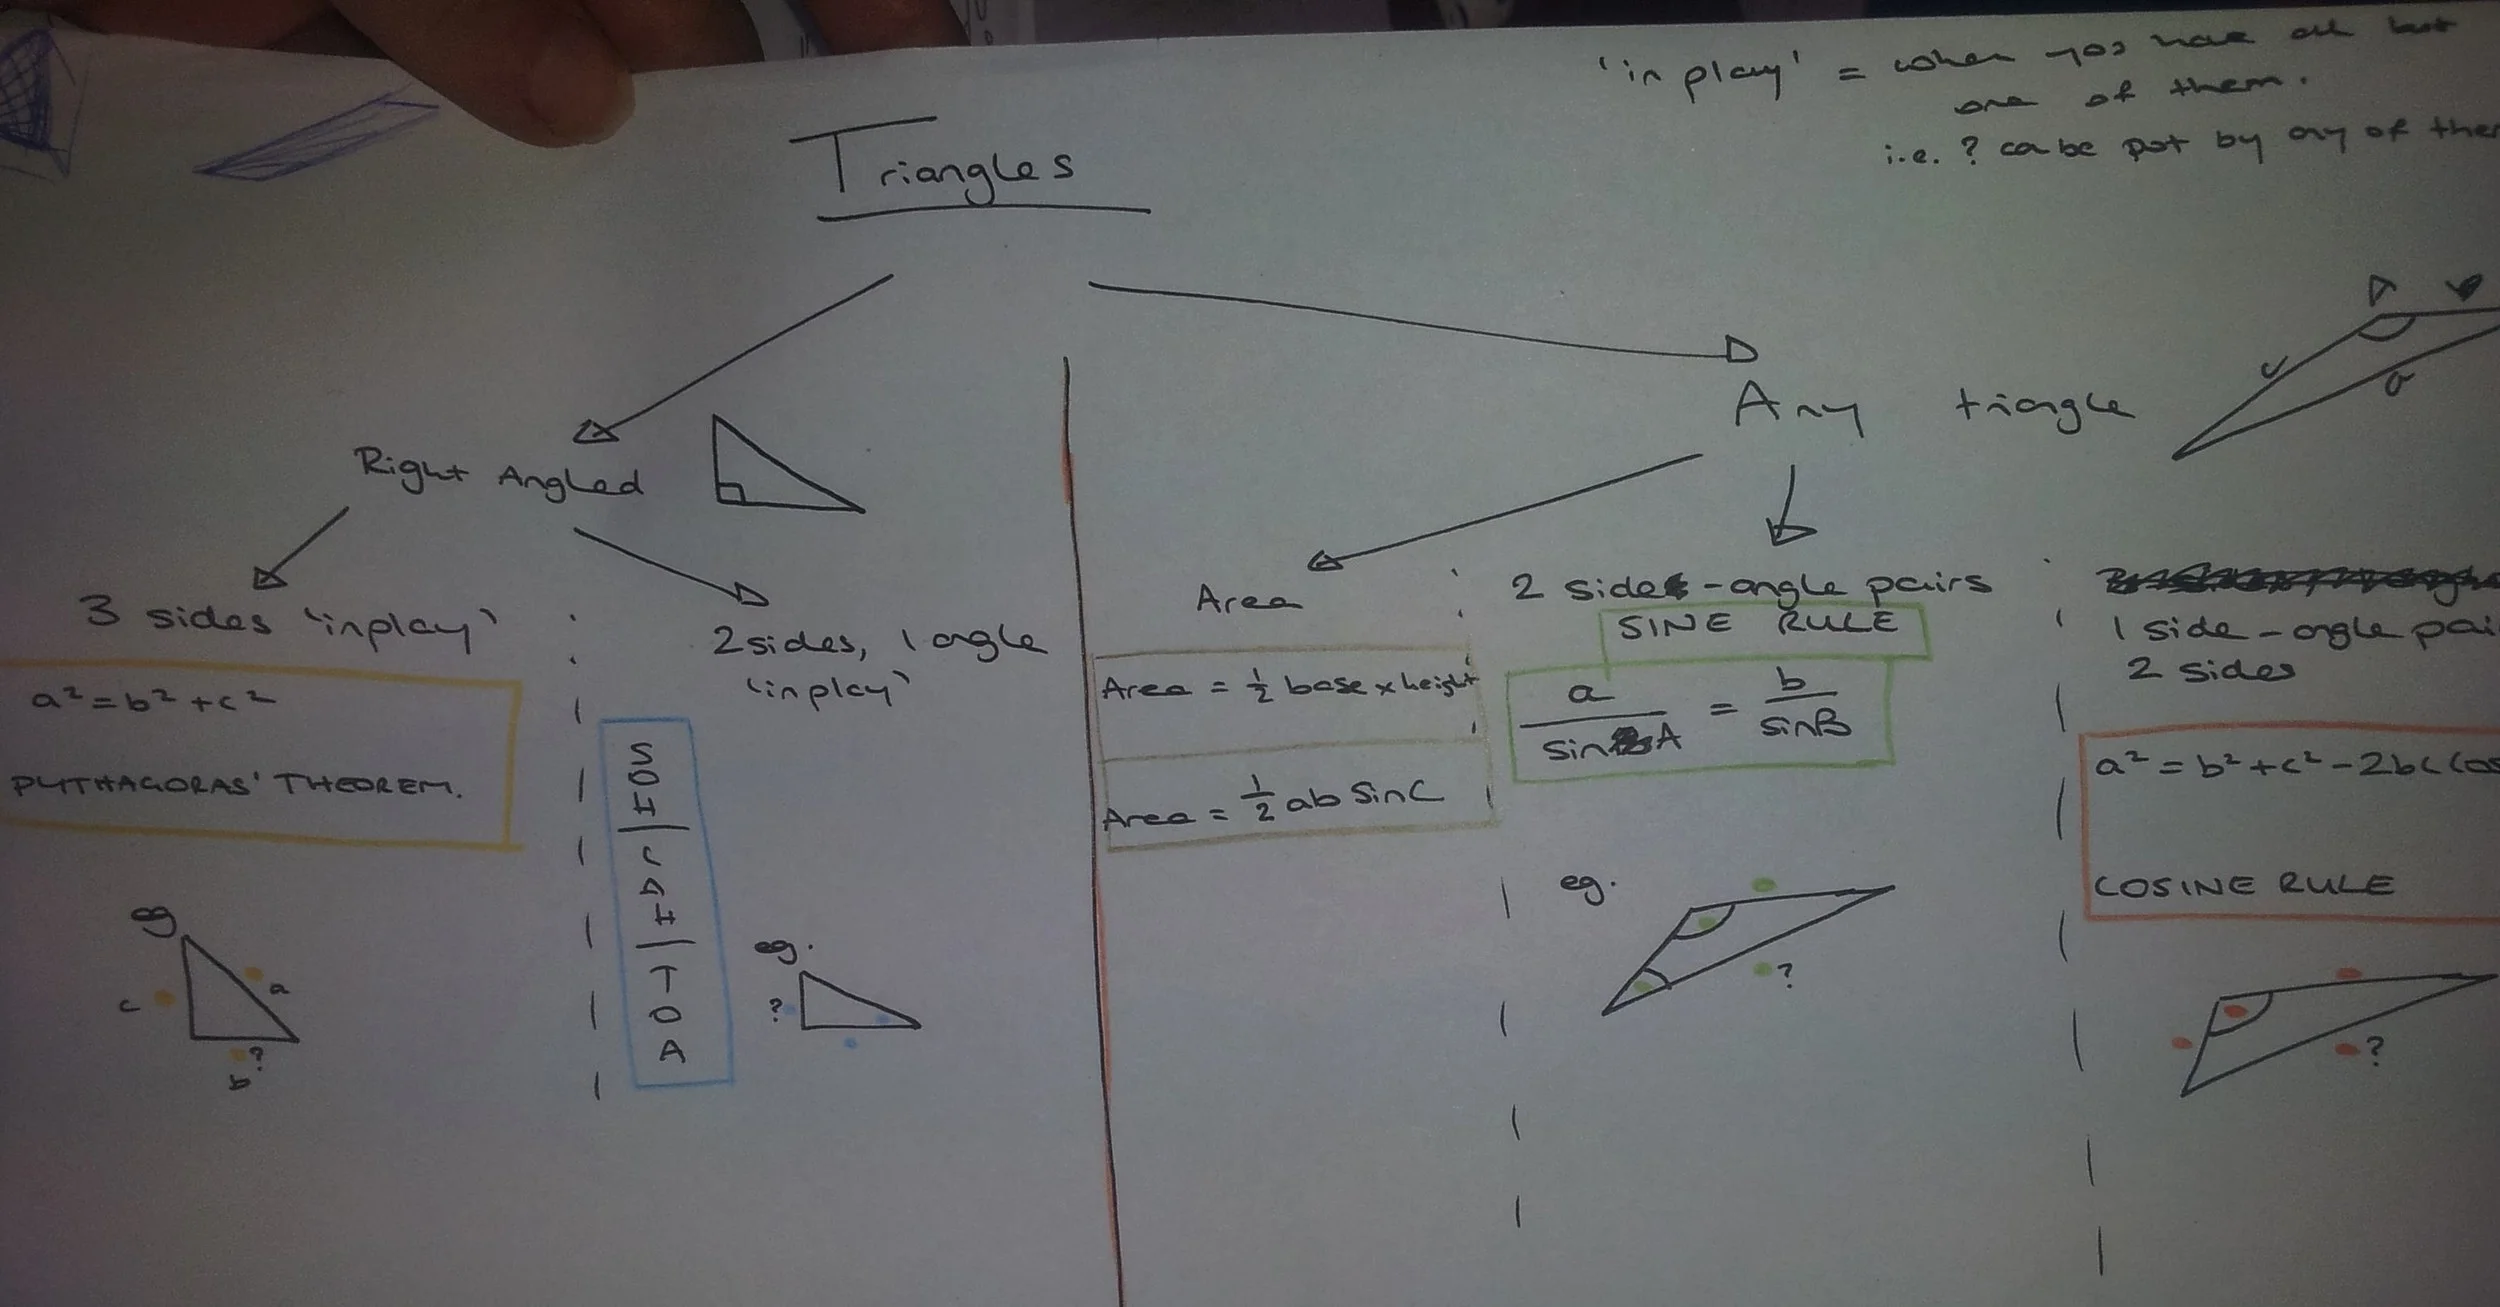 'in play' = when you have all but
one of them.
i.e. ? can be put by any of them
Triangles
Right Angled
3 sides 'in play'
a² = b² + c²
PYTHAGORAS' THEOREM.
eg
c
a
?
b
2 sides, 1 angle
'in play'
SOH|CAH|TOA
eg.
?
Any triangle
A
b
c
a
Area
Area = ½ base x height
Area = ½ ab sin C
2 side - angle pairs
SINE RULE
a/sin A = b/sin B
eg.
?
1 side - angle pai
2 sides
a² = b² + c² - 2bc Cos
COSINE RULE
?